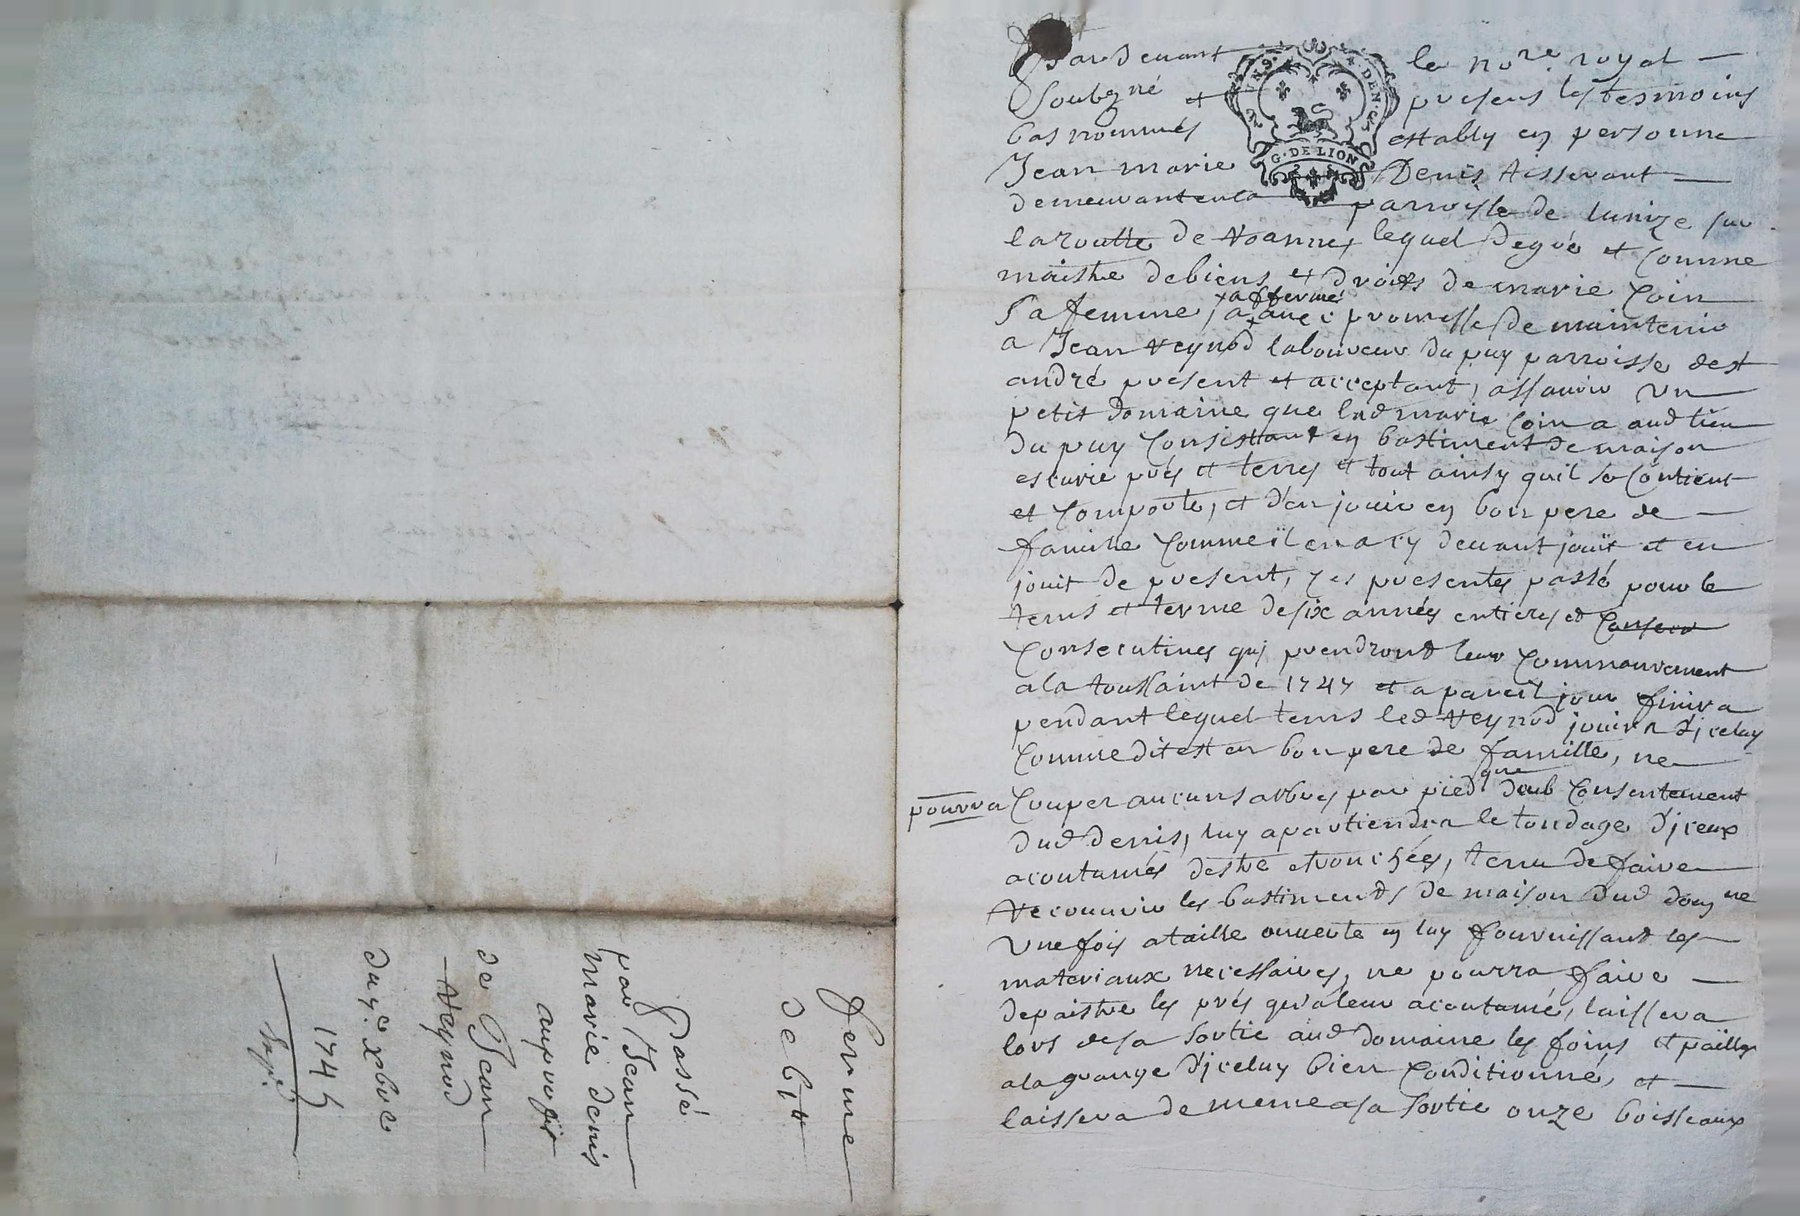 Pardevant le no.re royal
Soubzné et presens les tesmoins
bas nommés estably en personne
Jean marie Denis tisserant
demeurant en la parroisse de lunize sur
la routte de Roanne, lequel de gré et comme
maistre de biens et droits de marie Coin
sa femme, a affermé avec promesse de maintenir
a Jean Reynod laboureur du puy parroisse de st
andré present et acceptant, assavoir un
petit domaine que lad marie Coin a aud lieu
du puy consistant en bastiment de maison
escurie prés et terres et tout ainsy quil se contient
et comporte, et d'en jouir en bon pere de
famille comme il en a cy devant jouit et en
jouit de present, ces presentes passé pour le
tems et terme de six années entieres et consecu
consecutives qui prendront leur commancement
a la toussaint de 1747 et a pareil jour finira
pendant lequel tems led Reynod jouira d'jceluy
comme dit est en bon pere de famille, ne
pourra couper aucuns arbres par pied que du consentement
dud denis, luy apartiendra le tondage d'jceux
acoutumés destre etronchées, tenu de faire
recouvrir les bastiments de maison dud dom ne
une fois a taille ouverte en luy fournissant les
materiaux necessaires, ne pourra faire
depaistre les prés qu'a leur acoutumé, laissera
lors de sa sortie aud domaine les foins et pailles
a la grange d'jceluy bien conditionné, et
laissera de meme a sa sortie onze boisseaux
ferme
de 61#
Passé
par Jean
marie denis
au profit
de Jean
Reynod
du 9.e xbre
1745
G. DE LION